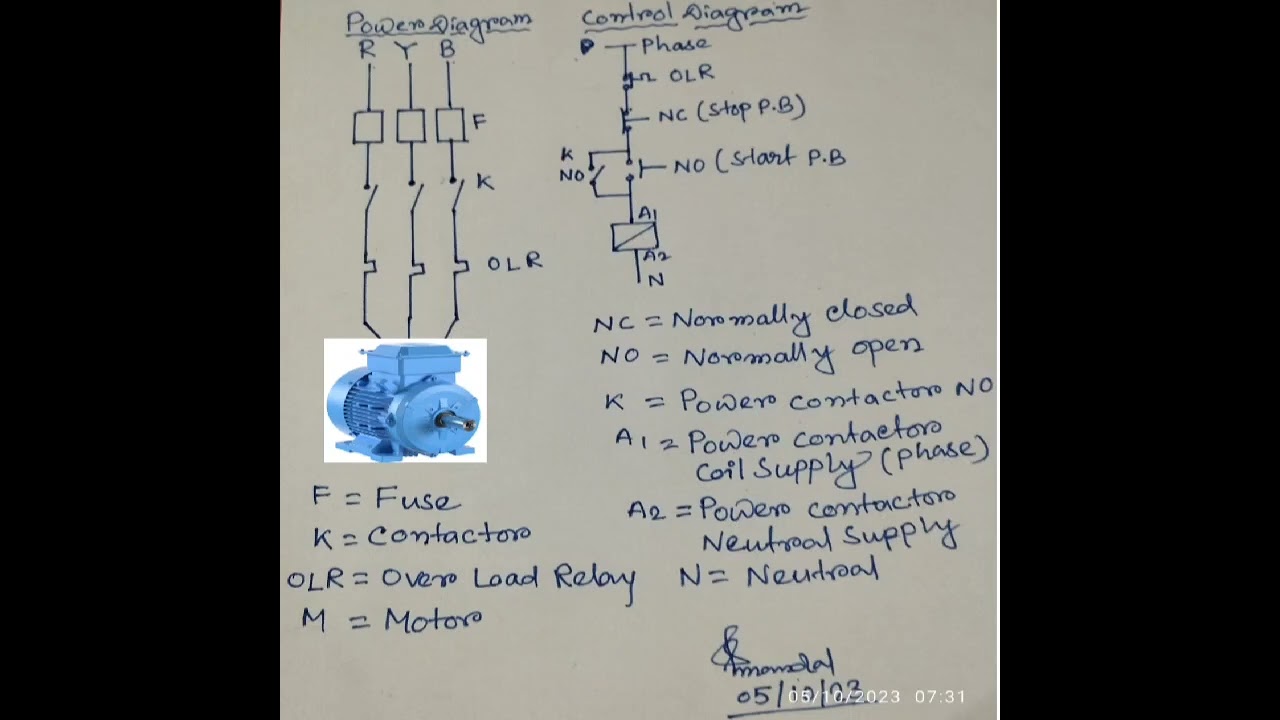 Power Diagram
R Y B
F
K
OLR
F = Fuse
K = Contactor
OLR = Over Load Relay
M = Motor
Control Diagram
P Phase
OLR
NC (Stop P.B)
K
NO
NO (Start P.B
A1
A2
N
NC = Normally closed
NO = Normally open
K = Power contactor NO
A1 = Power contactor
Coil Supply (Phase)
A2 = Power contactor
Neutral Supply
N = Neutral
mondal
05/10/23
05/10/2023 07:31